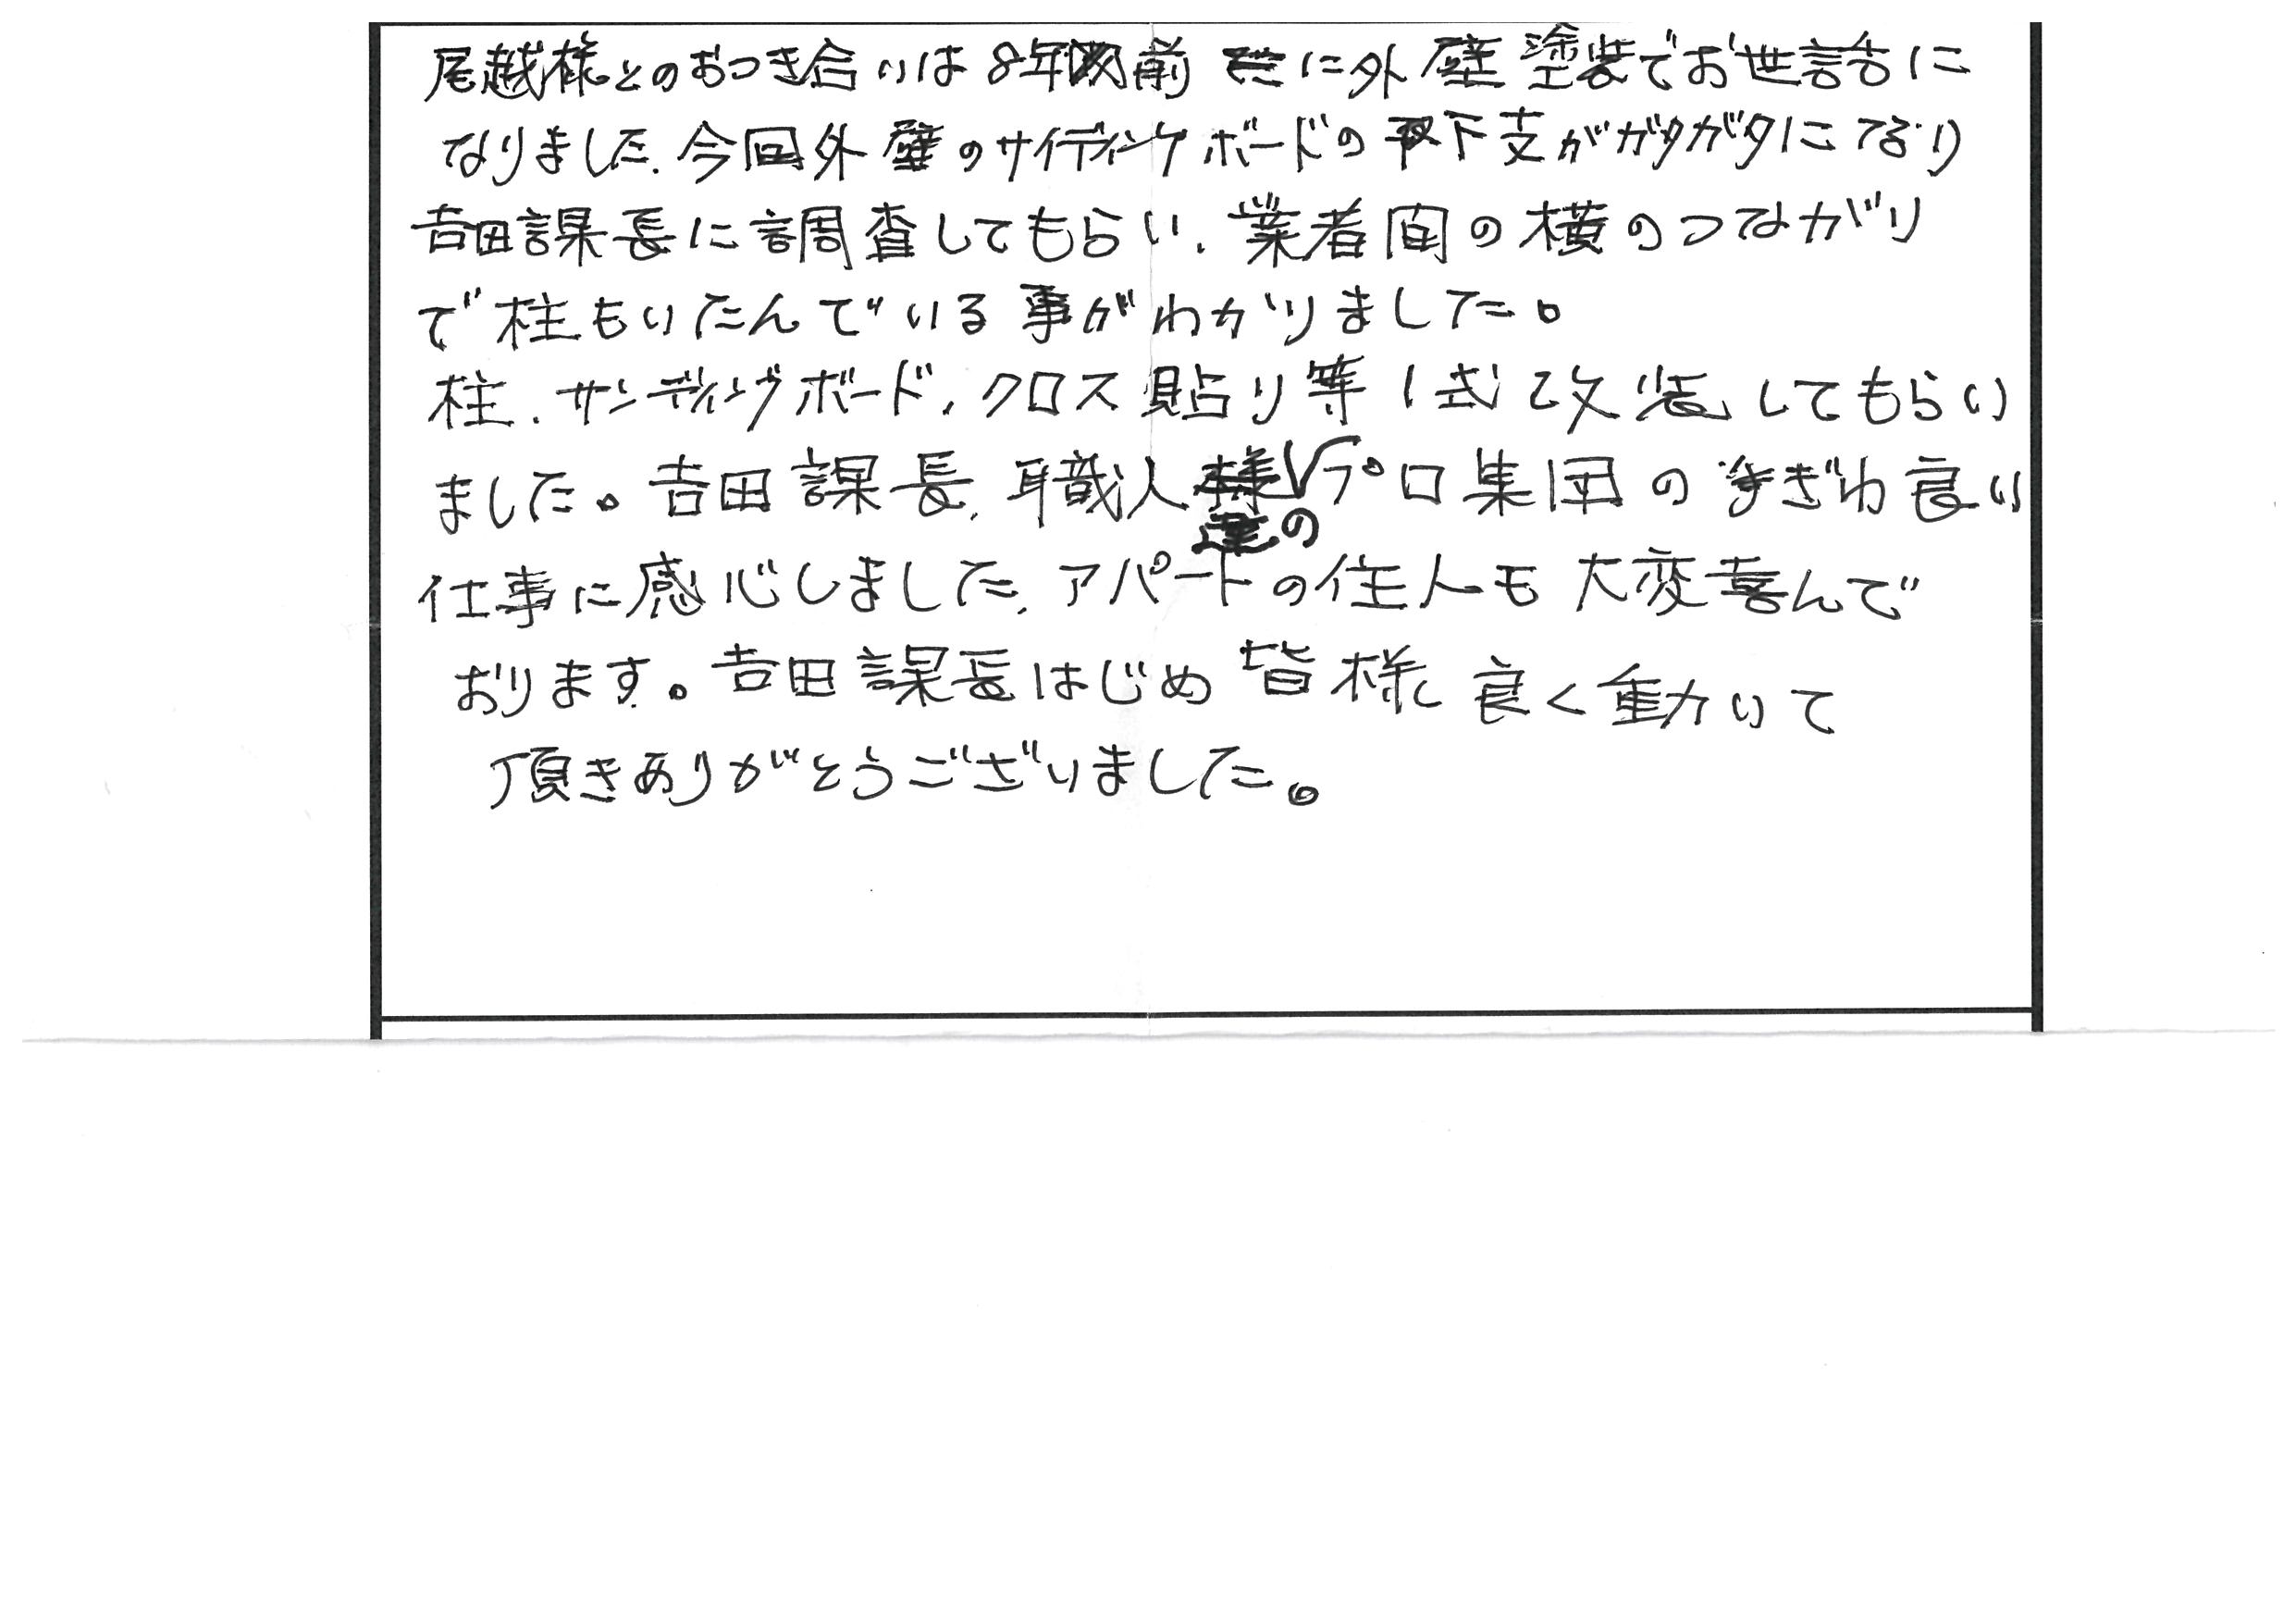 尾越様とのおつき合いは8年前に外壁塗装でお世話に
なりました.今回外壁のサイディングボードの下支がガタガタになり
吉田課長に調査してもらい、業者間の横のつながり
で柱もいたんでいる事がわかりました。
柱、サンディングボード、クロス貼り等1式改装してもらい
ました。吉田課長、職人達のプロ集団の手ぎわ良い
仕事に感心しました、アパートの住人も大変喜んで
おります。吉田課長はじめ皆様良く動いて
頂きありがとうございました。